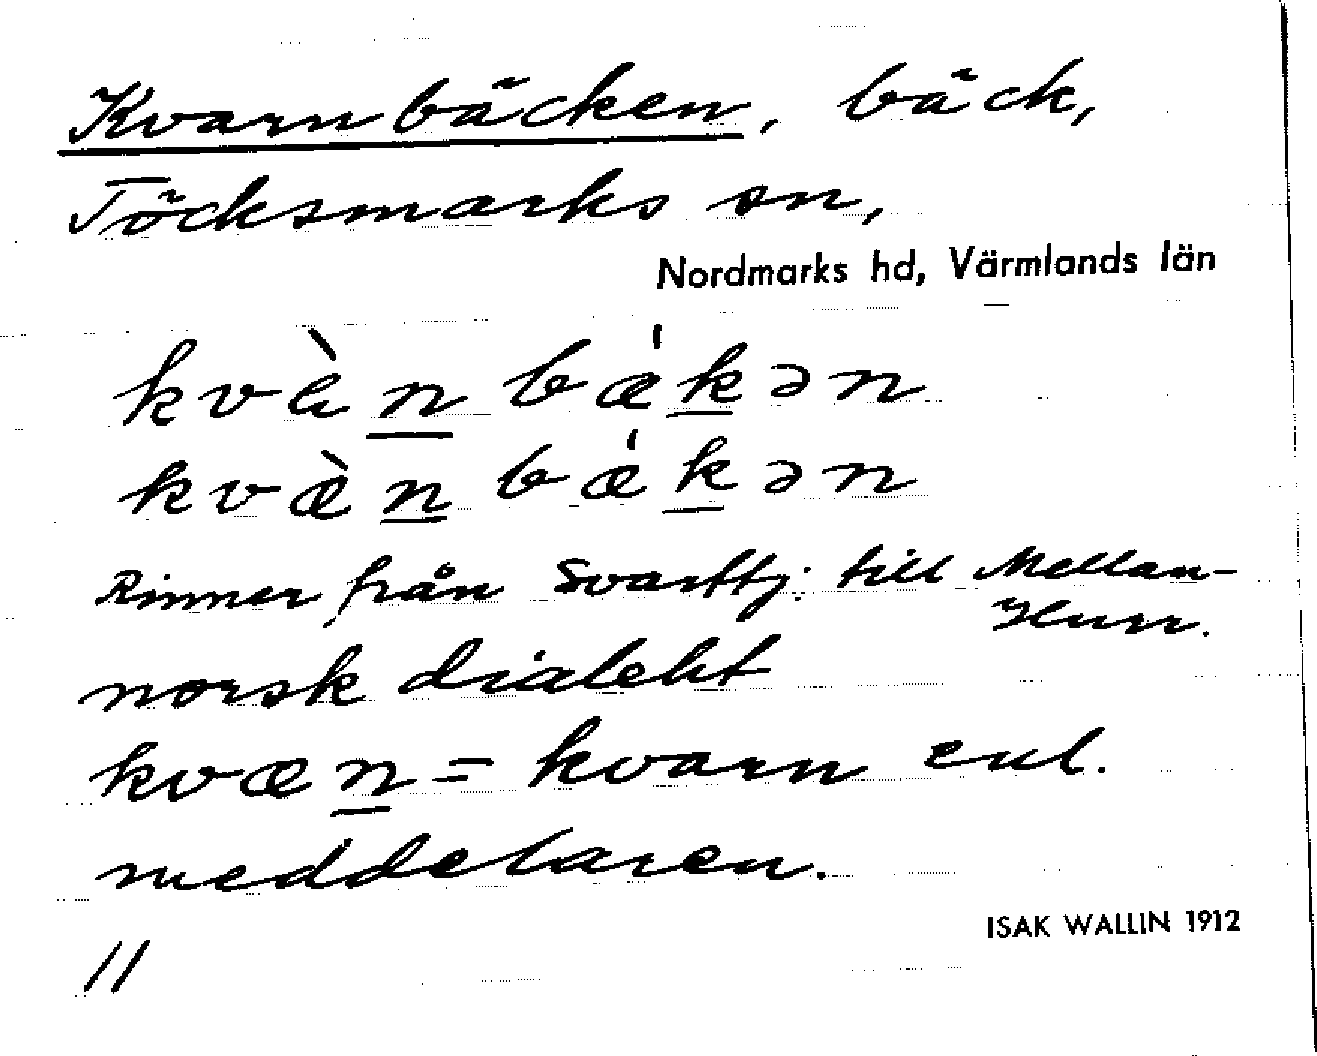 Kvarnbäcken, bäck,
Töcksmarks sn,
Nordmarks hd, Värmlands län
kvàn bǽkən
kvæ̀n bǽkən
Rinner från Svarttj. till Mellan-
Hurr.
norsk dialekt
kvæn = kvarn enl.
meddelaren.
ISAK WALLIN 1912
11